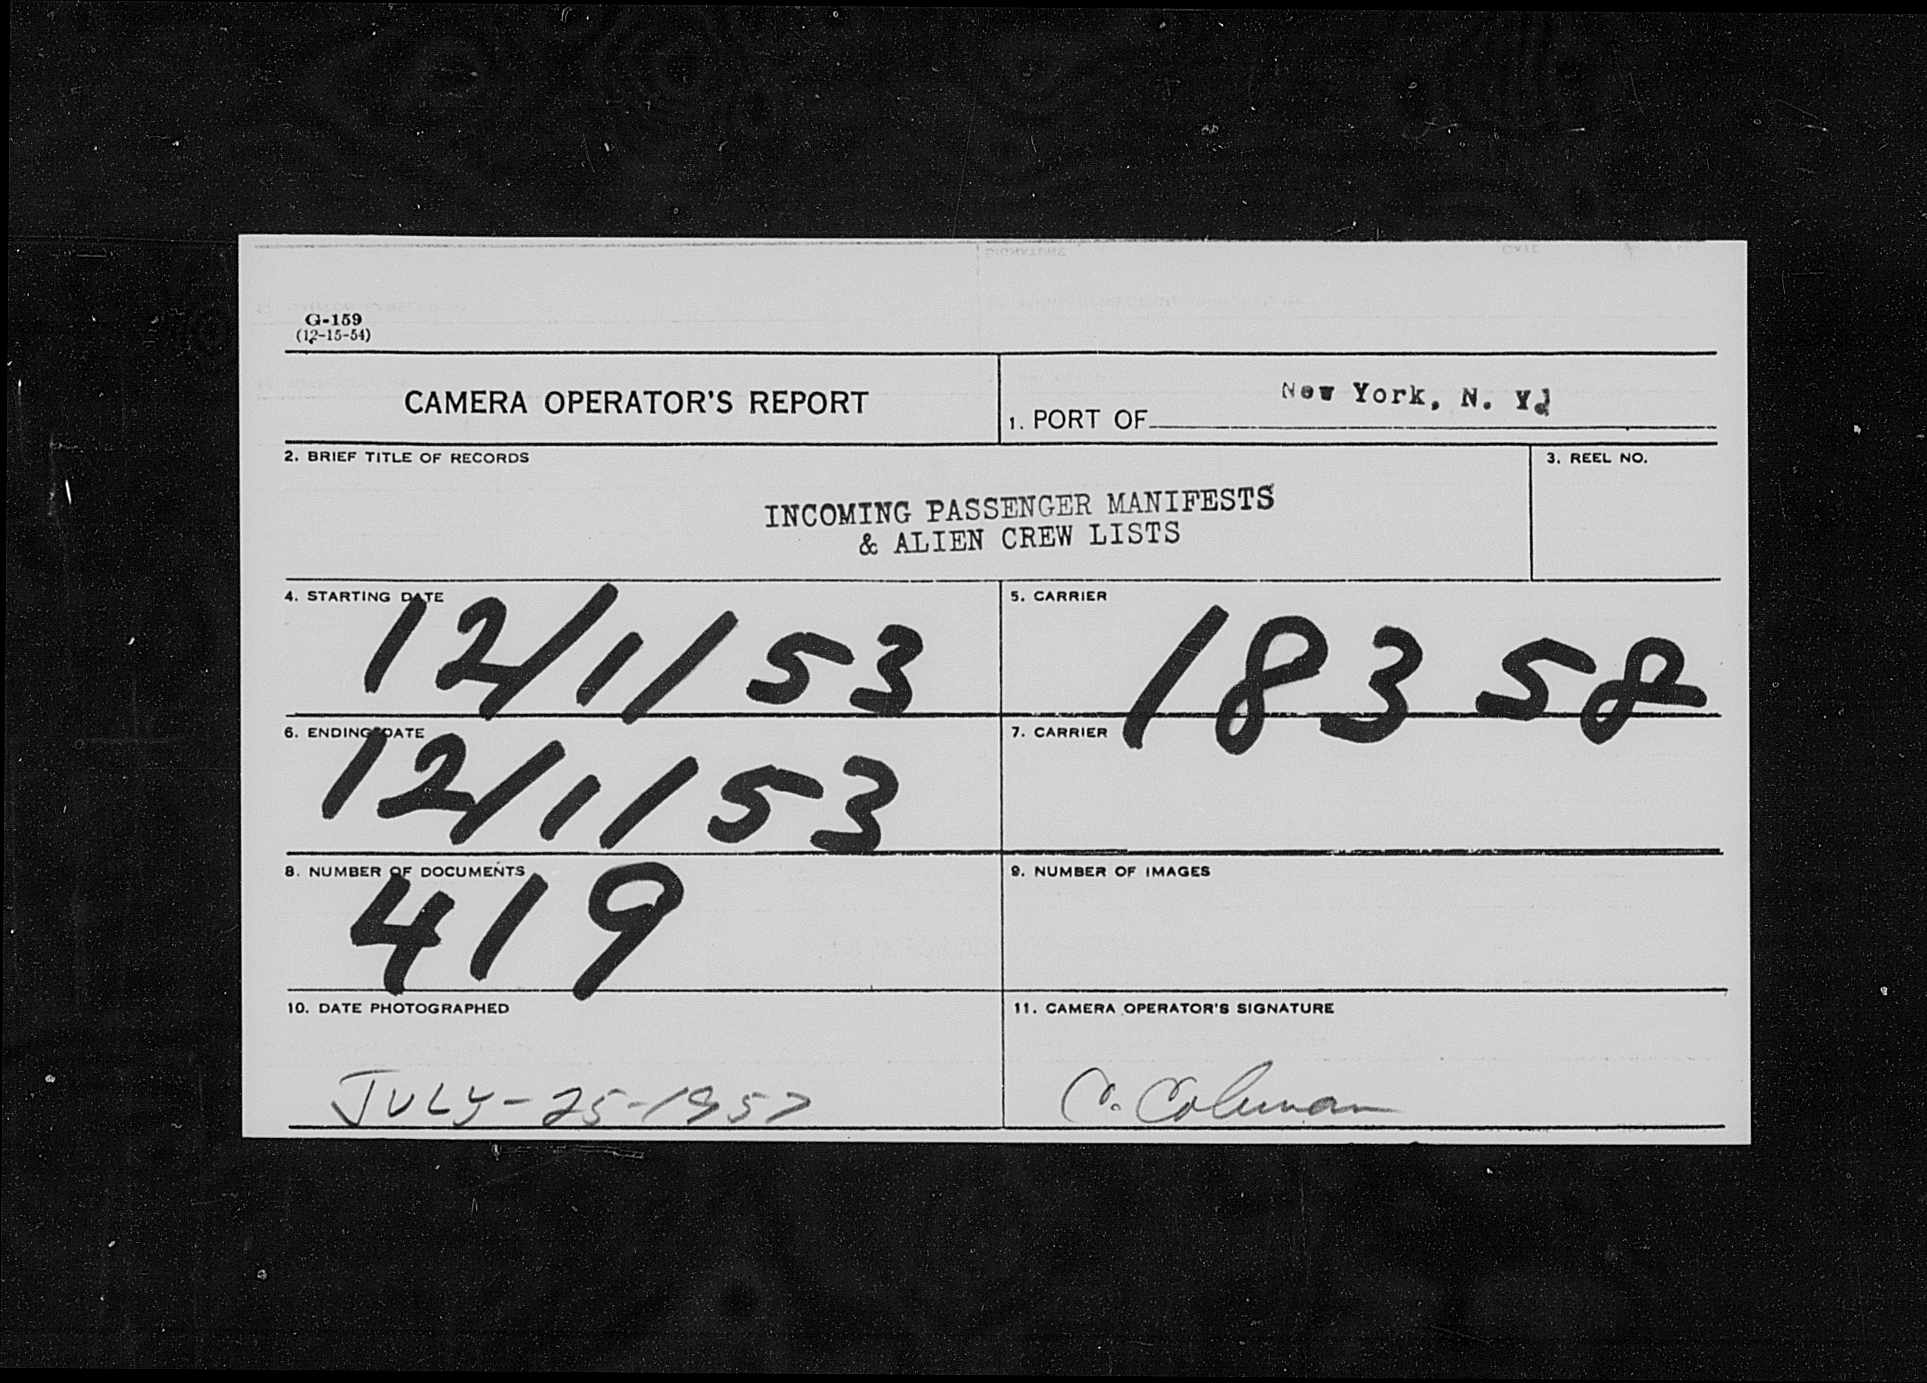 G-159
(12-15-54)
CAMERA OPERATOR'S REPORT
1. PORT OF New York, N. Y.
2. BRIEF TITLE OF RECORDS
INCOMING PASSENGER MANIFESTS
& ALIEN CREW LISTS
3. REEL NO.
4. STARTING DATE
12/1/53
5. CARRIER
18358
6. ENDING DATE
12/1/53
7. CARRIER
8. NUMBER OF DOCUMENTS
419
9. NUMBER OF IMAGES
10. DATE PHOTOGRAPHED
JULY-25-1957
11. CAMERA OPERATOR'S SIGNATURE
C. Coleman